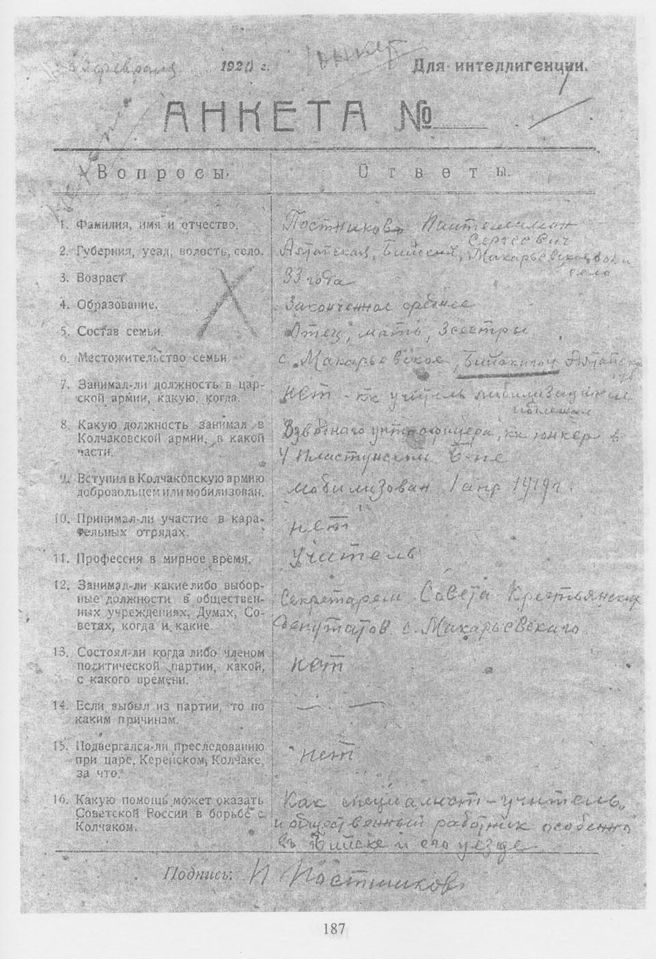 февраля 1920 г. Для интеллигенции.
Юнкер
АНКЕТА №
Вопросы. Ответы.
1. Фамилия, имя и отчество. Постников Пантелеймон
Сергеевич
2. Губерния, уезд, волость, село. Алтайская, Бийский, Макарьевская вол и
село
3. Возраст 33 года
4. Образование. Законченное среднее
5. Состав семьи. Отец, мать, 3 сестры
6. Местожительство семьи с. Макарьевское,
7. Занимал-ли должность в цар-
ской армии, какую, когда. нет - кк учитель мобилизации не
8. Какую должность занимал в
Колчаковской армии, в какой
части. Взводного унт-офицера, кк юнкер в
Пластунском б-не
9. Вступил в Колчаковскую армию
добровольцем или мобилизован. мобилизован 1 апр 1919 г.
10. Принимал-ли участие в кара-
тельных отрядах. нет
11. Профессия в мирное время. учитель
12. Занимал-ли какие либо выбор-
ные должности в обществен-
ных учреждениях, Думах, Со-
ветах, когда и какие. Секретарем Совета Крестьянских
депутатов с. Макарьевского
13. Состоял-ли когда либо членом
политической партии, какой,
с какого времени. нет
14. Если выбыл из партии, то по
каким причинам. — —
15. Подвергался-ли преследованию
при царе, Керенском, Колчаке,
за что. нет
16. Какую помощь может оказать
Советской России в борьбе с
Колчаком. Как специалист-учитель,
и общественный работник особенно
в Бийске и его уезде
Подпись: П Постников
187